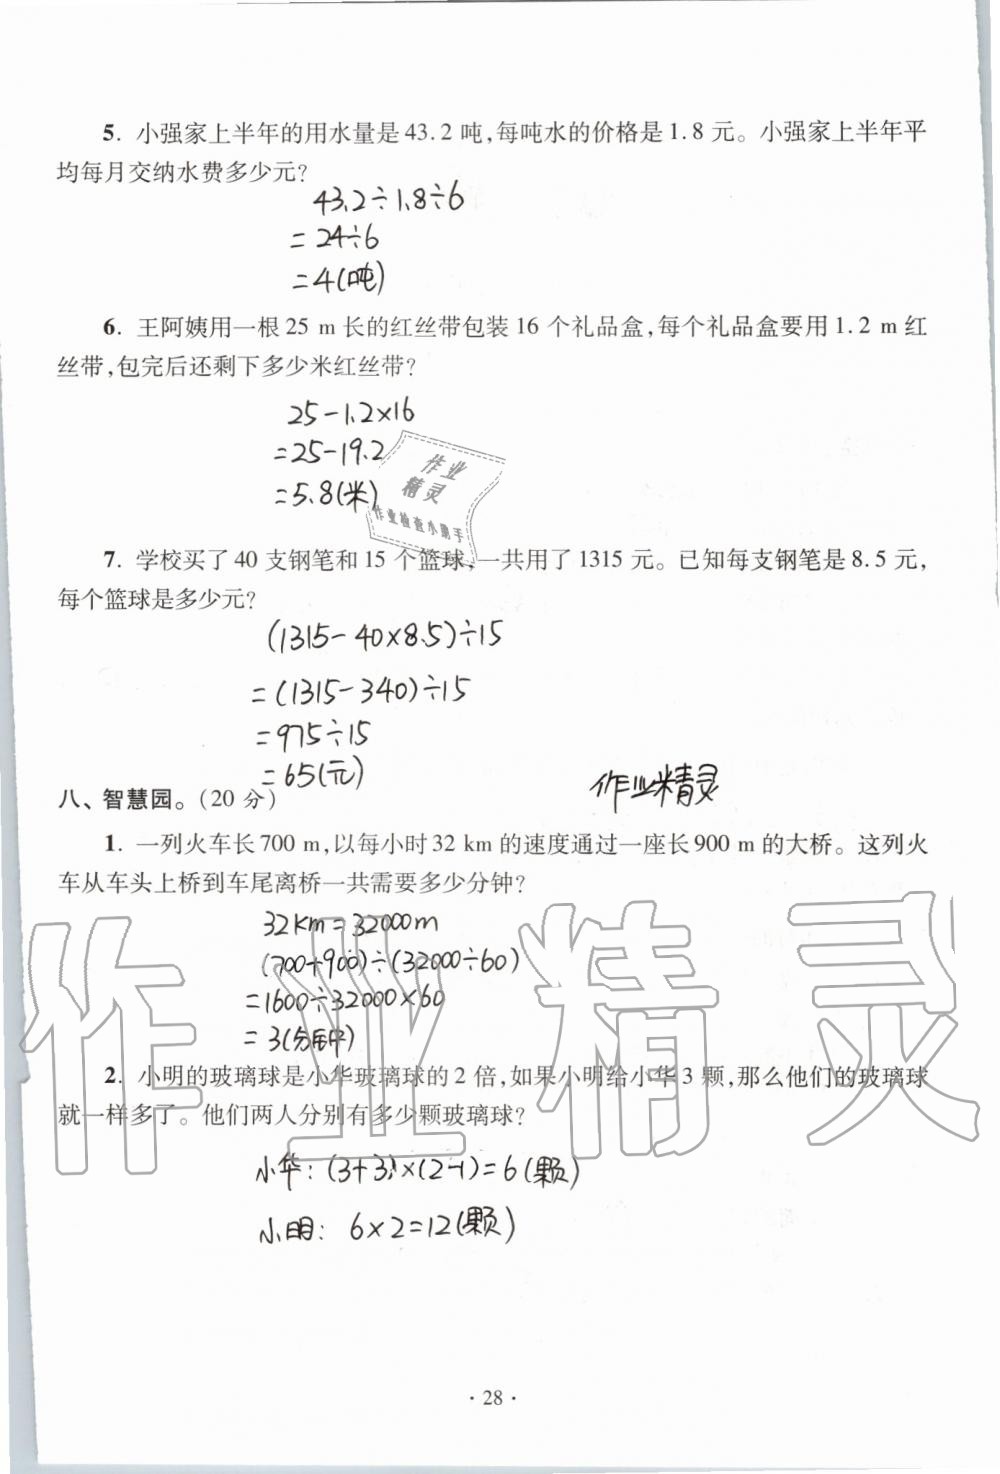 5. 小强家上半年的用水量是43.2 吨,每吨水的价格是1.8 元。小强家上半年平
均每月交纳水费多少元?
43.2÷1.8÷6
=24÷6
=4(吨)
6. 王阿姨用一根25 m 长的红丝带包装16 个礼品盒,每个礼品盒要用1.2 m 红
丝带,包完后还剩下多少米红丝带?
25-1.2×16
=25-19.2
=5.8(米)
作业
精灵
作业检查小助手
7. 学校买了40 支钢笔和15 个篮球,一共用了1315 元。已知每支钢笔是8.5 元,
每个篮球是多少元?
(1315-40×8.5)÷15
=(1315-340)÷15
=975÷15
=65(元)
作业精灵
八、智慧园。(20 分)
1. 一列火车长700 m,以每小时32 km 的速度通过一座长900 m 的大桥。这列火
车从车头上桥到车尾离桥一共需要多少分钟?
32km=32000m
(700+900)÷(32000÷60)
=1600÷32000×60
=3(分钟)
作业精灵
2. 小明的玻璃球是小华玻璃球的2 倍,如果小明给小华3 颗,那么他们的玻璃球
就一样多了。他们两人分别有多少颗玻璃球?
小华:(3+3)×(2-1)=6(颗)
小明: 6×2=12(颗)
·28·